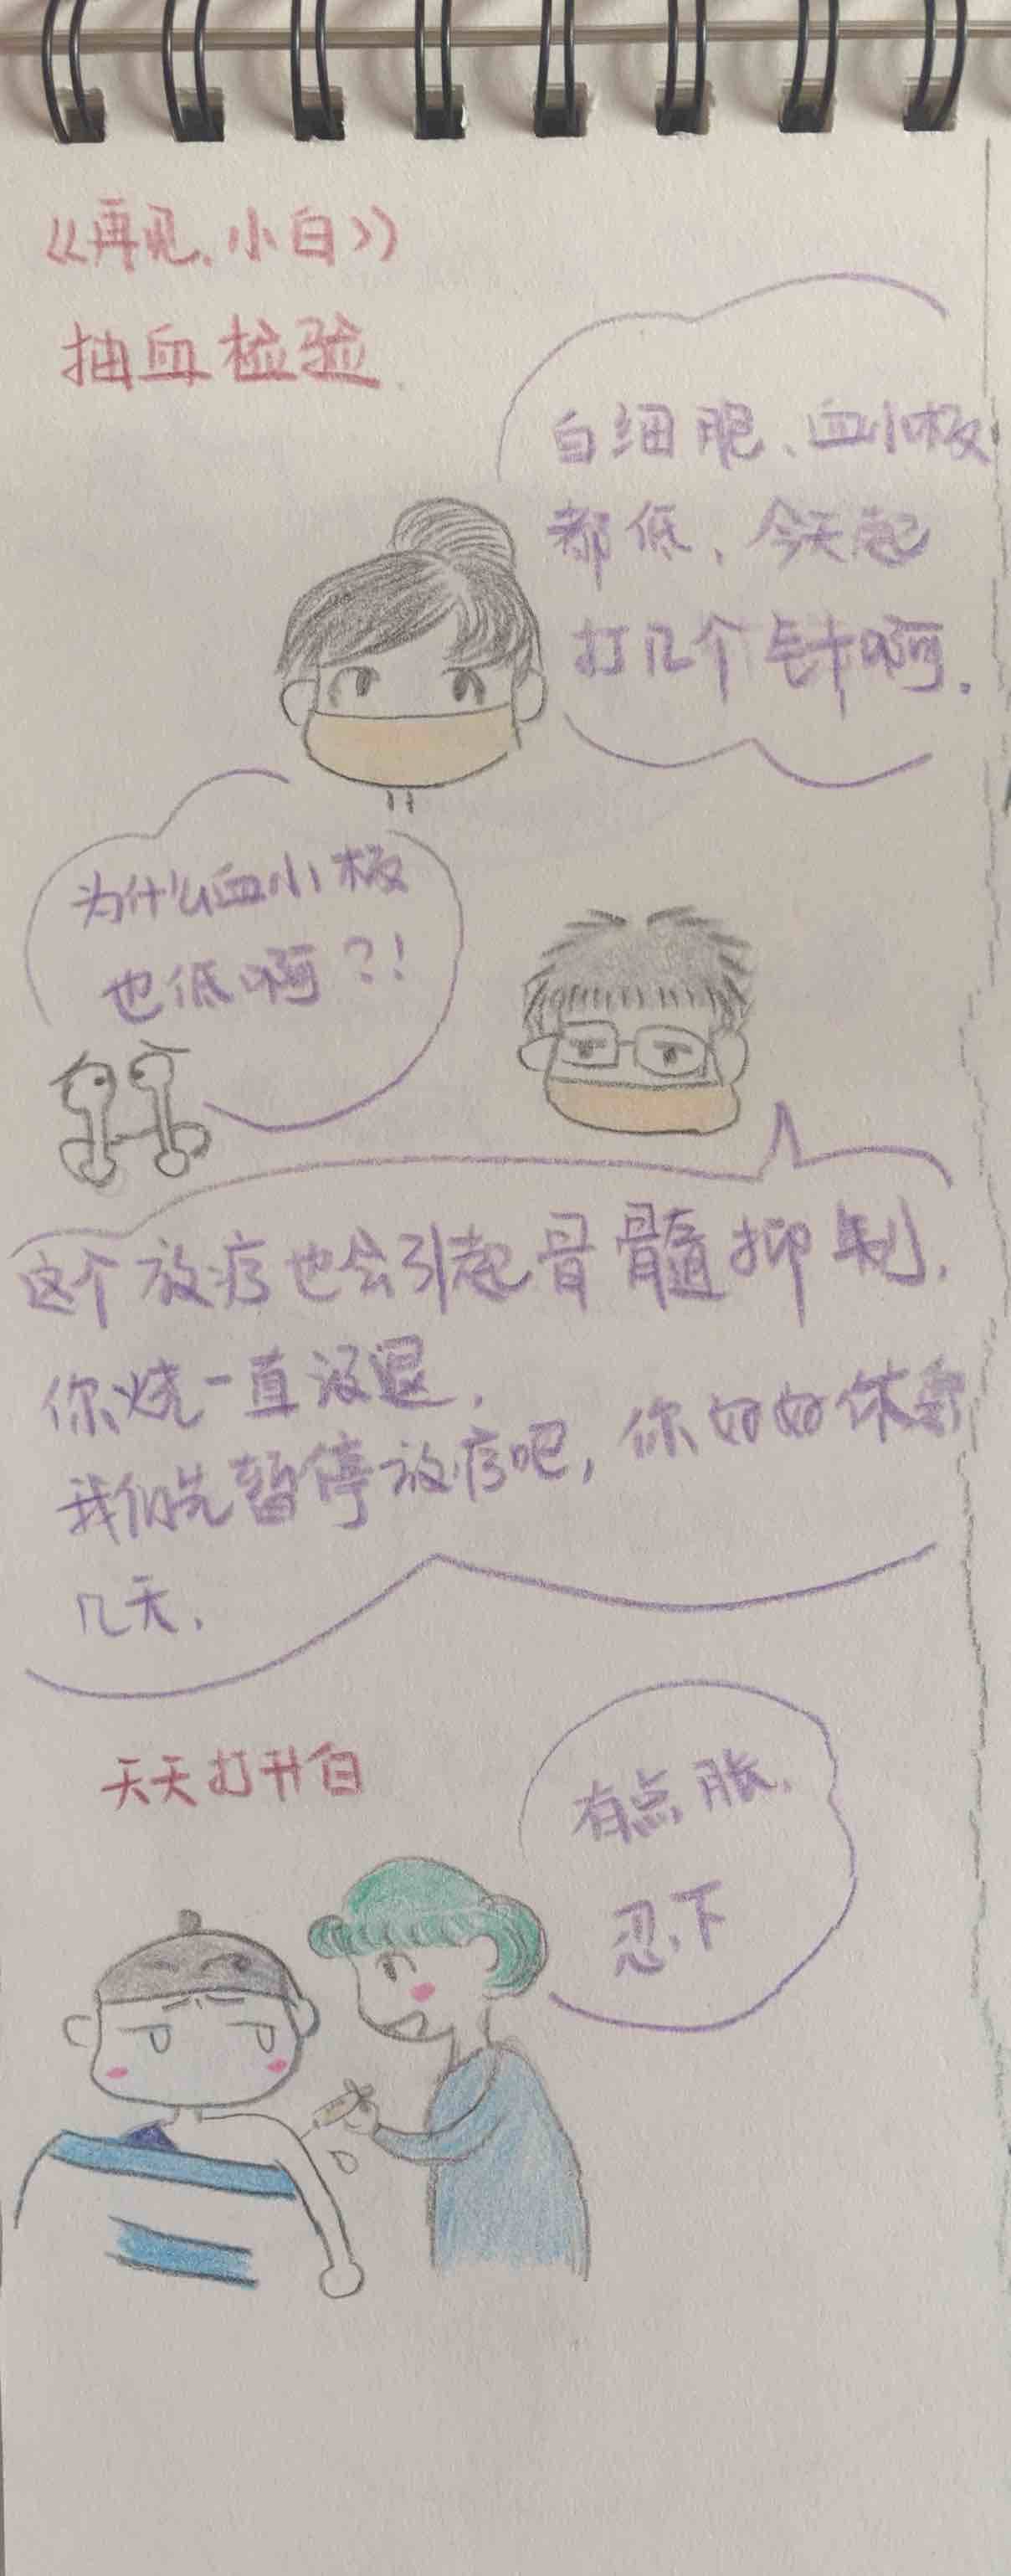 《再见，小白》
抽血检验
白细胞、血小板
都低，今天起
打几个针啊．
为什么血小板
也低啊？！
这个放疗也会引起骨髓抑制．
你烧一直没退．
我们先暂停放疗吧，你好好休息
几天．
天天打升白
有点胀．
忍下